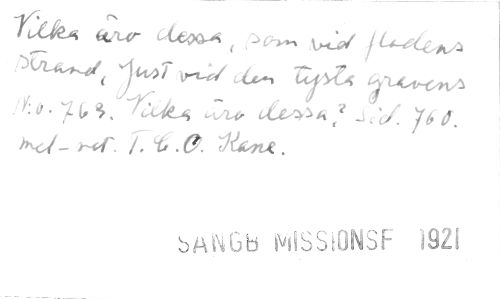 Vilka äro dessa, som vid flodens
strand, Just vid den tysta gravens
N:o. 769. Vilka äro dessa? Sid. 760.
mel-not. T. C. O. Kane.
SANGB MISSIONSF 1921